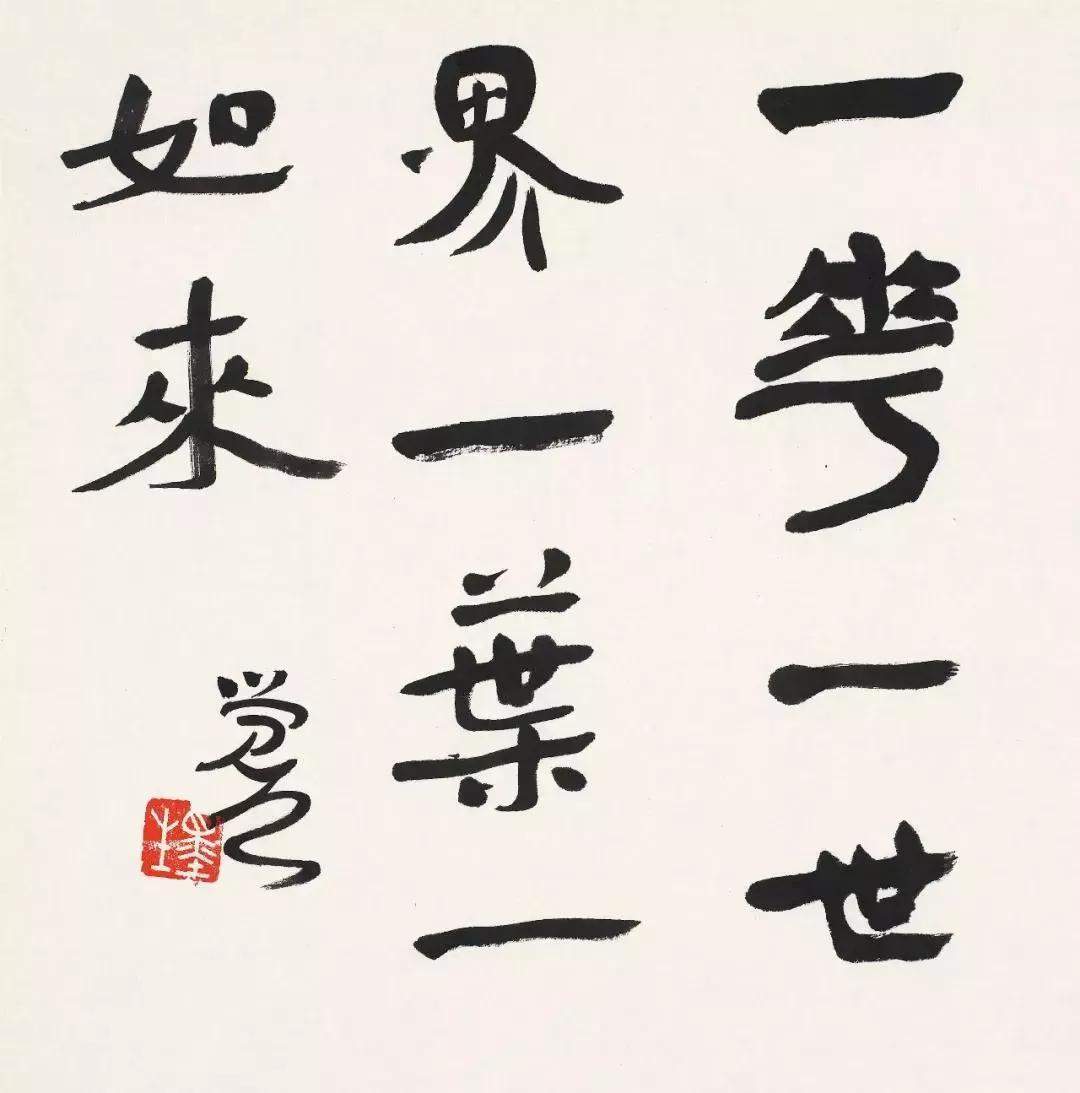 一華一世
界一葉一
如來